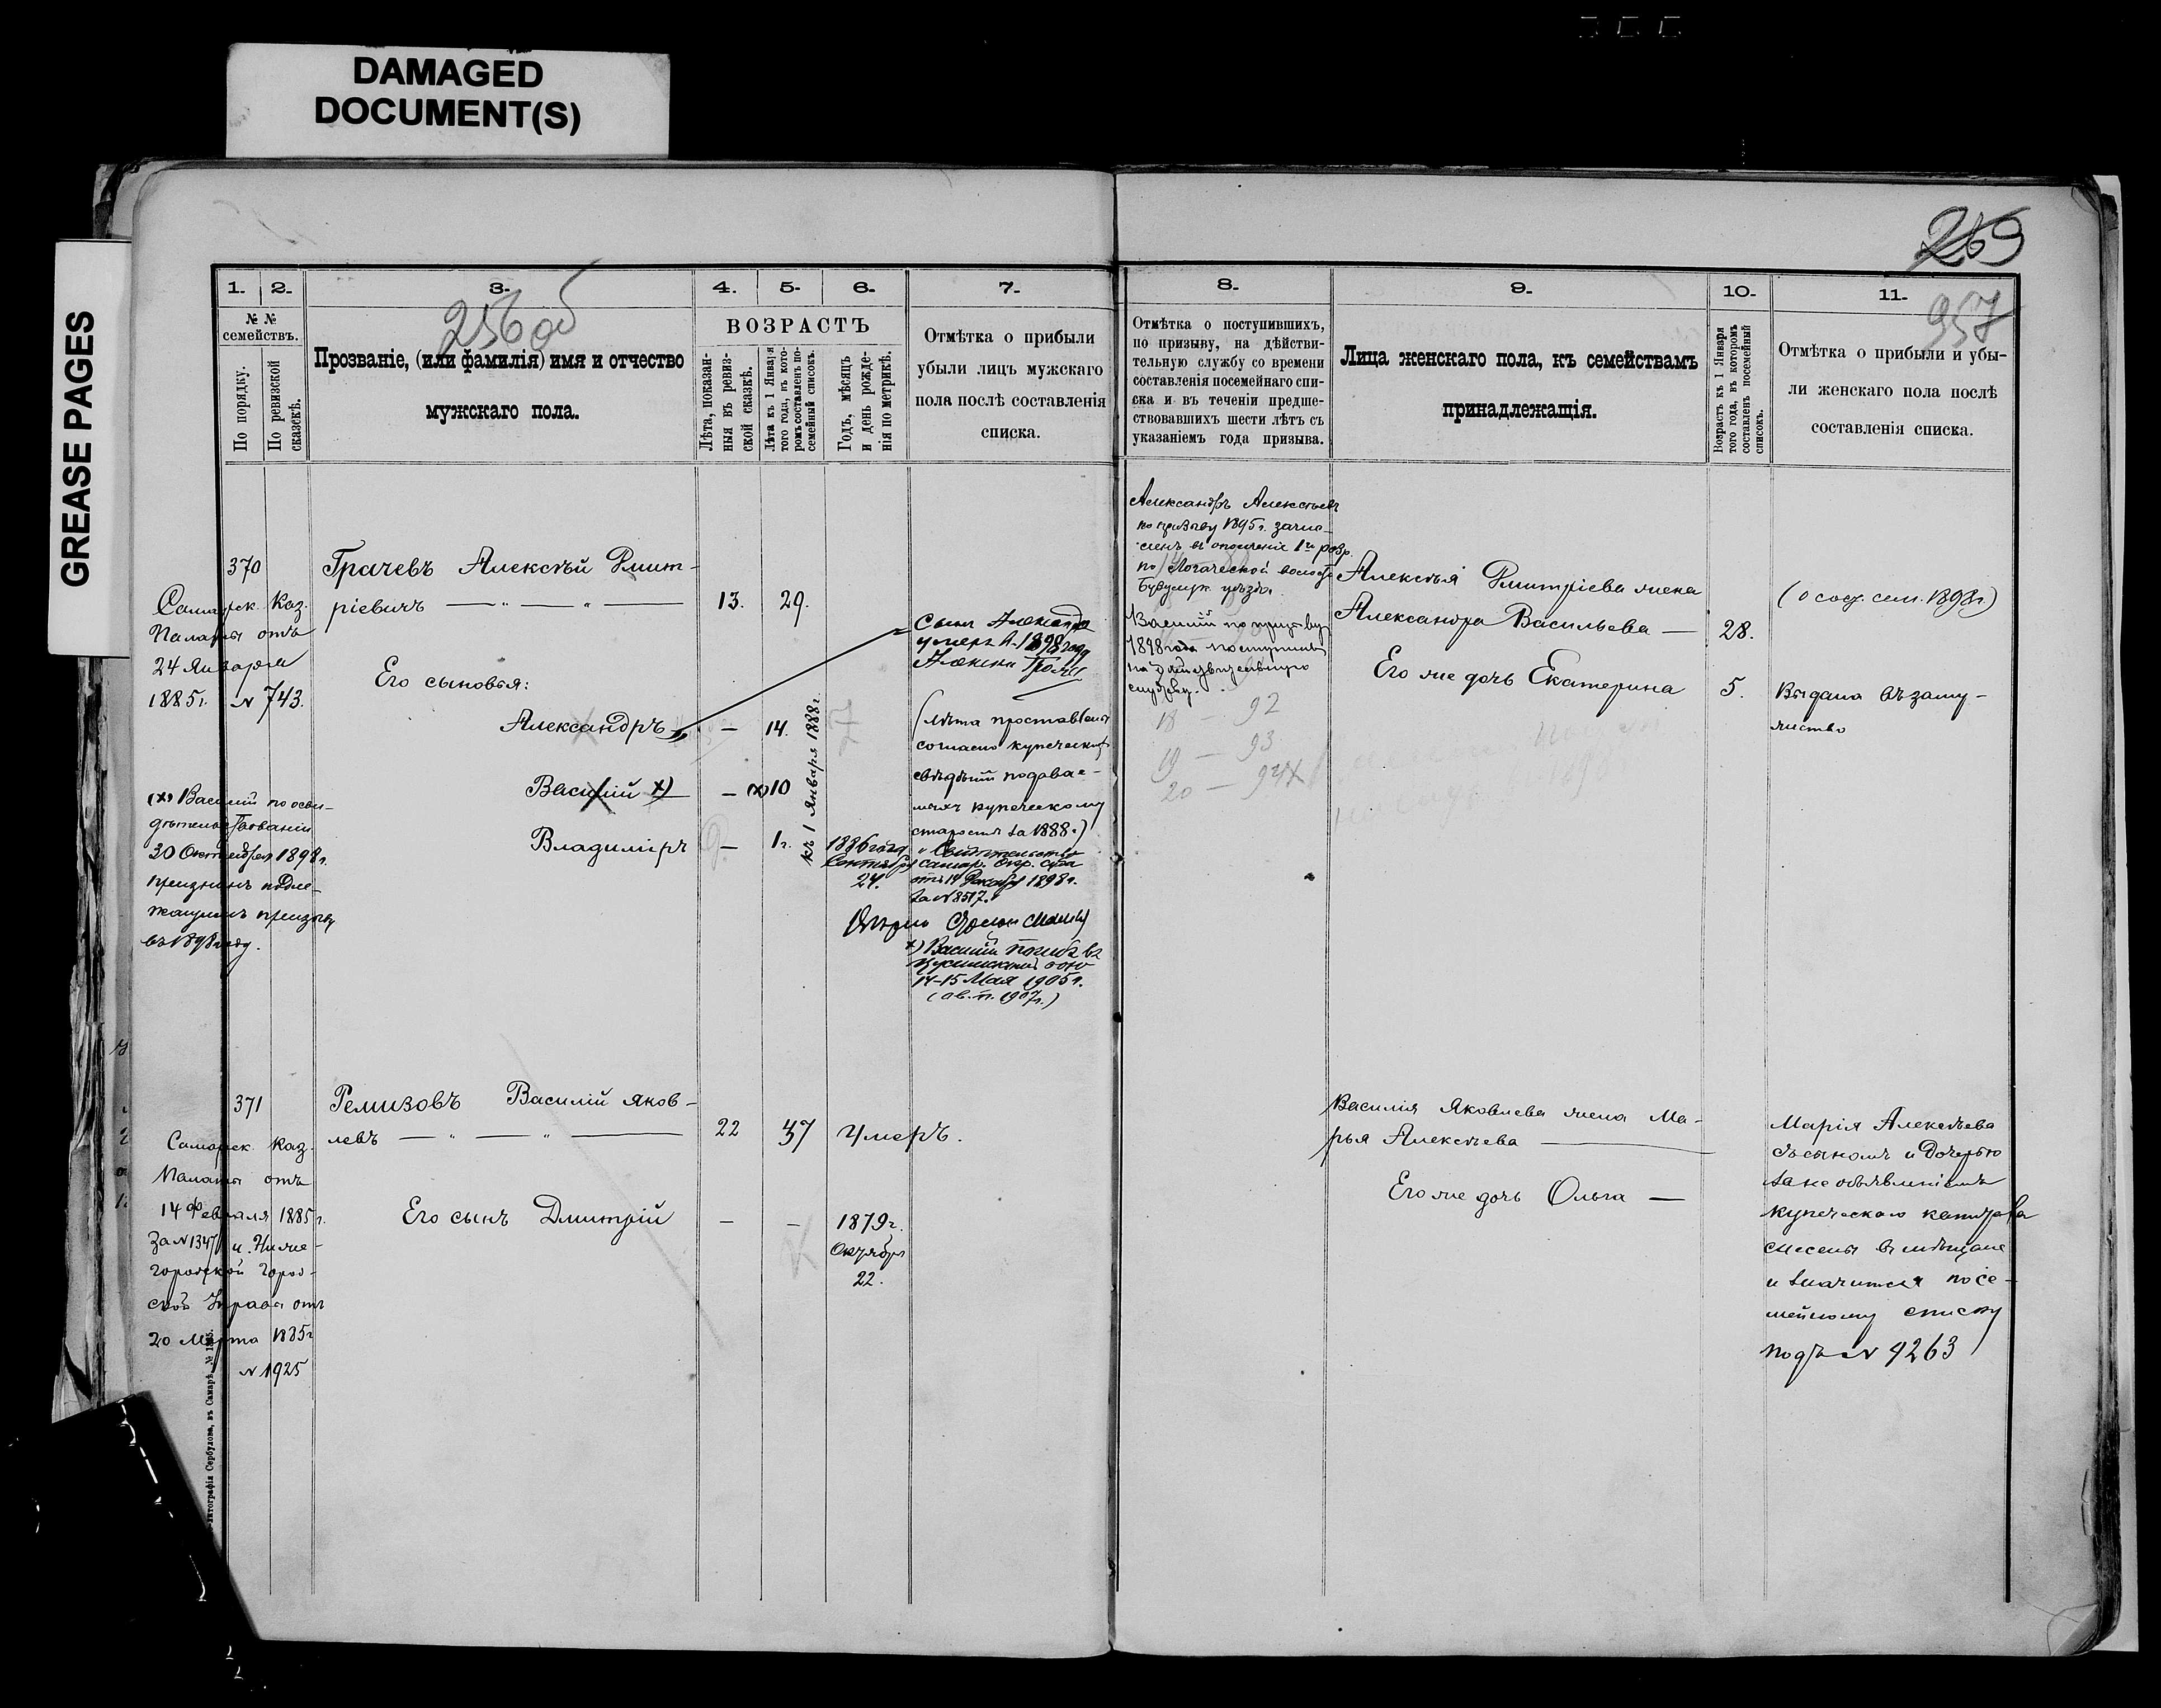 DAMAGED
DOCUMENT(S)
GREASE PAGES
269
957
256 об
1. 2. 3. 4. 5. 6. 7.
№ №
семействъ.
По порядку.
По ревизской
сказкѣ.
Прозваніе, (или фамилія) имя и отчество
мужскаго пола.
ВОЗРАСТЪ
Лѣта, показан-
ныя въ ревиз-
ской сказкѣ.
Лѣта къ 1 Января
того года, въ кото-
ромъ составленъ по-
семейный списокъ.
Годъ, мѣсяцъ
и день рожде-
нія по метрикѣ.
Отмѣтка о прибыли
убыли лицъ мужскаго
пола послѣ составленія
списка.
370
Самарск. Каз.
Палаты отъ
24 Января
1885 г. № 743.
Грачевъ Алексѣй Дмит-
ріевичъ
13. 29.
Его сыновья:
Александръ — 14.
Василій х) — (х) 10
Владиміръ — 1 г.
къ 1 Января 1888 г.
1886 года
Сентября
24.
(х) Василій по осви-
дѣтельствованіи
30 Октября 1898 г.
признанъ подле-
жащимъ призыву
въ 1898 году.
Сынъ Александръ
умеръ въ 1898 году
(лѣта проставлены
согласно купеческихъ
свѣдѣній подавае-
мыхъ купеческому
старостѣ за 1888 г.)
Свидѣтельство
самар. окр. суда
отъ 19 Декабря 1898 г.
за № 8517.
х) Василій погибъ въ
Цусимскомъ бою
14-15 Мая 1905 г.
1907 г.)
371
Самарск. Каз.
Палаты отъ
14 Февраля 1885 г.
За № 1347 и Ниже-
городской Город-
ской Управы отъ
20 Марта 1885 г.
№ 1925
Ремизовъ Василій Яков-
левъ
22 37 Умеръ.
Его сынъ Дмитрій — —
1879 г.
Октября
22.
8. 9. 10. 11.
Отмѣтка о поступившихъ,
по призыву, на дѣйстви-
тельную службу со времени
составленія посемейнаго спи-
ска и въ теченіи предше-
ствовавшихъ шести лѣтъ съ
указаніемъ года призыва.
Лица женскаго пола, къ семействамъ
принадлежащія.
Возрастъ къ 1 Января
того года, въ которомъ
составленъ посемейный
списокъ.
Отмѣтка о прибыли и убы-
ли женскаго пола послѣ
составленія списка.
Александръ Алексѣевъ
по призыву 1895 г. зачис-
ленъ въ ополченіе 1го разр.
по волости
Бузулук. уѣзда.
Василій по призыву
1898 года поступилъ
на дѣйствительную
службу.
18 — 92
19 — 93
20 — 94
Алексѣя Дмитріева жена
Александра Васильева — 28.
Его же дочь Екатерина 5.
сем. 1898 г.)
Выдана въ заму-
жество
Василія Яковлева жена Ма-
рья Алексѣева
Его же дочь Ольга —
Марія Алексѣева
съ сыномъ и дочерью
за не объявленіемъ
купеческаго капитала
снесены въ мѣщане
и значится по се-
мейному списку
подъ № 9263